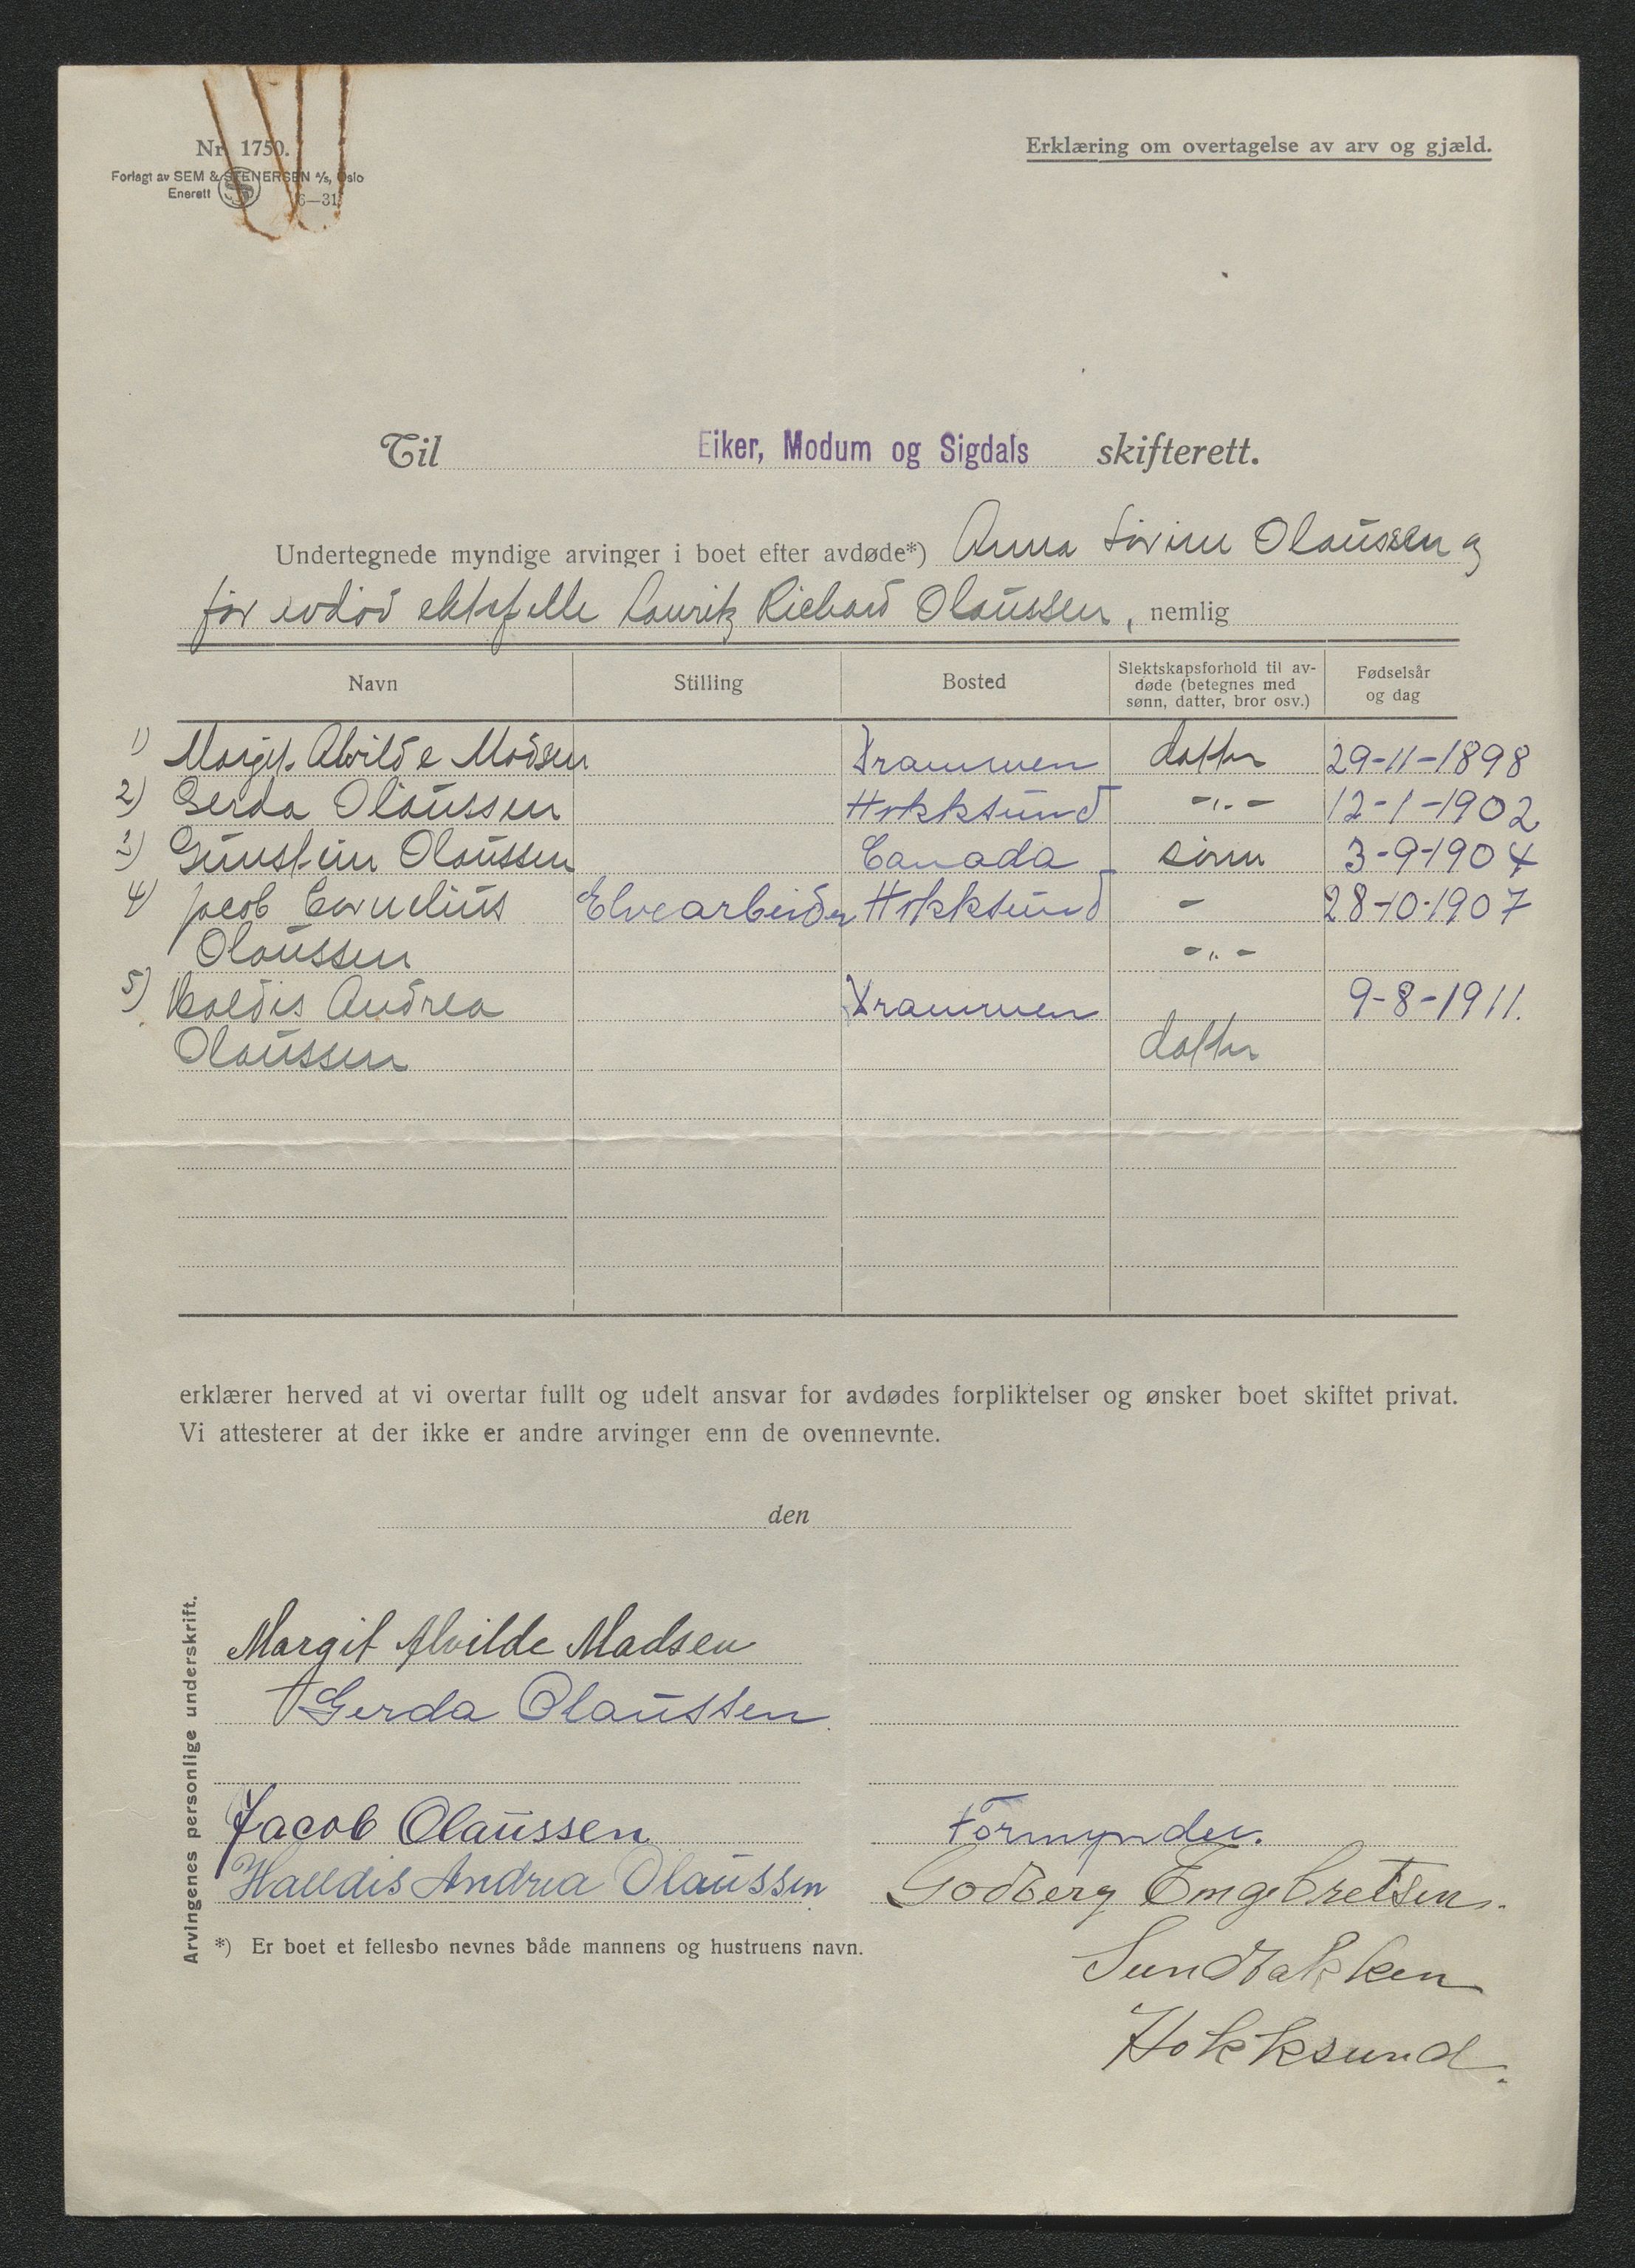 Nr. 1750.
Forlagt av SEM & STENERSEN A/S, Oslo
Enerett 6—31
Erklæring om overtagelse av arv og gjæld.
Til Eiker, Modum og Sigdals skifterett.
Undertegnede myndige arvinger i boet efter avdøde*) Anna Lovine Olaussen og
før avdød ektefelle Lauritz Richard Olaussen, nemlig
Navn Stilling Bosted Slektskapsforhold til av-
døde (betegnes med
sønn, datter, bror osv.) Fødselsår
og dag
1) Margit Alvilde Madsen Drammen datter 29-11-1898
2) Gerda Olaussen Hokksund -"- 12-1-1902
3) Gunstein Olaussen Canada sønn 3-9-1904
4) Jacob Cornelius Elvearbeider Hokksund - 28-10-1907
Olaussen -"-
5) Haldis Andrea Drammen 9-8-1911.
Olaussen datter
erklærer herved at vi overtar fullt og udelt ansvar for avdødes forpliktelser og ønsker boet skiftet privat.
Vi attesterer at der ikke er andre arvinger enn de ovennevnte.
den
Arvingenes personlige underskrift.
Margit Alvilde Madsen
Gerda Olaussen.
Jacob Olaussen Formynder.
Halldis Andrea Olaussen Godberg Engebretsen.
Sundbakken
Hokksund.
*) Er boet et fellesbo nevnes både mannens og hustruens navn.